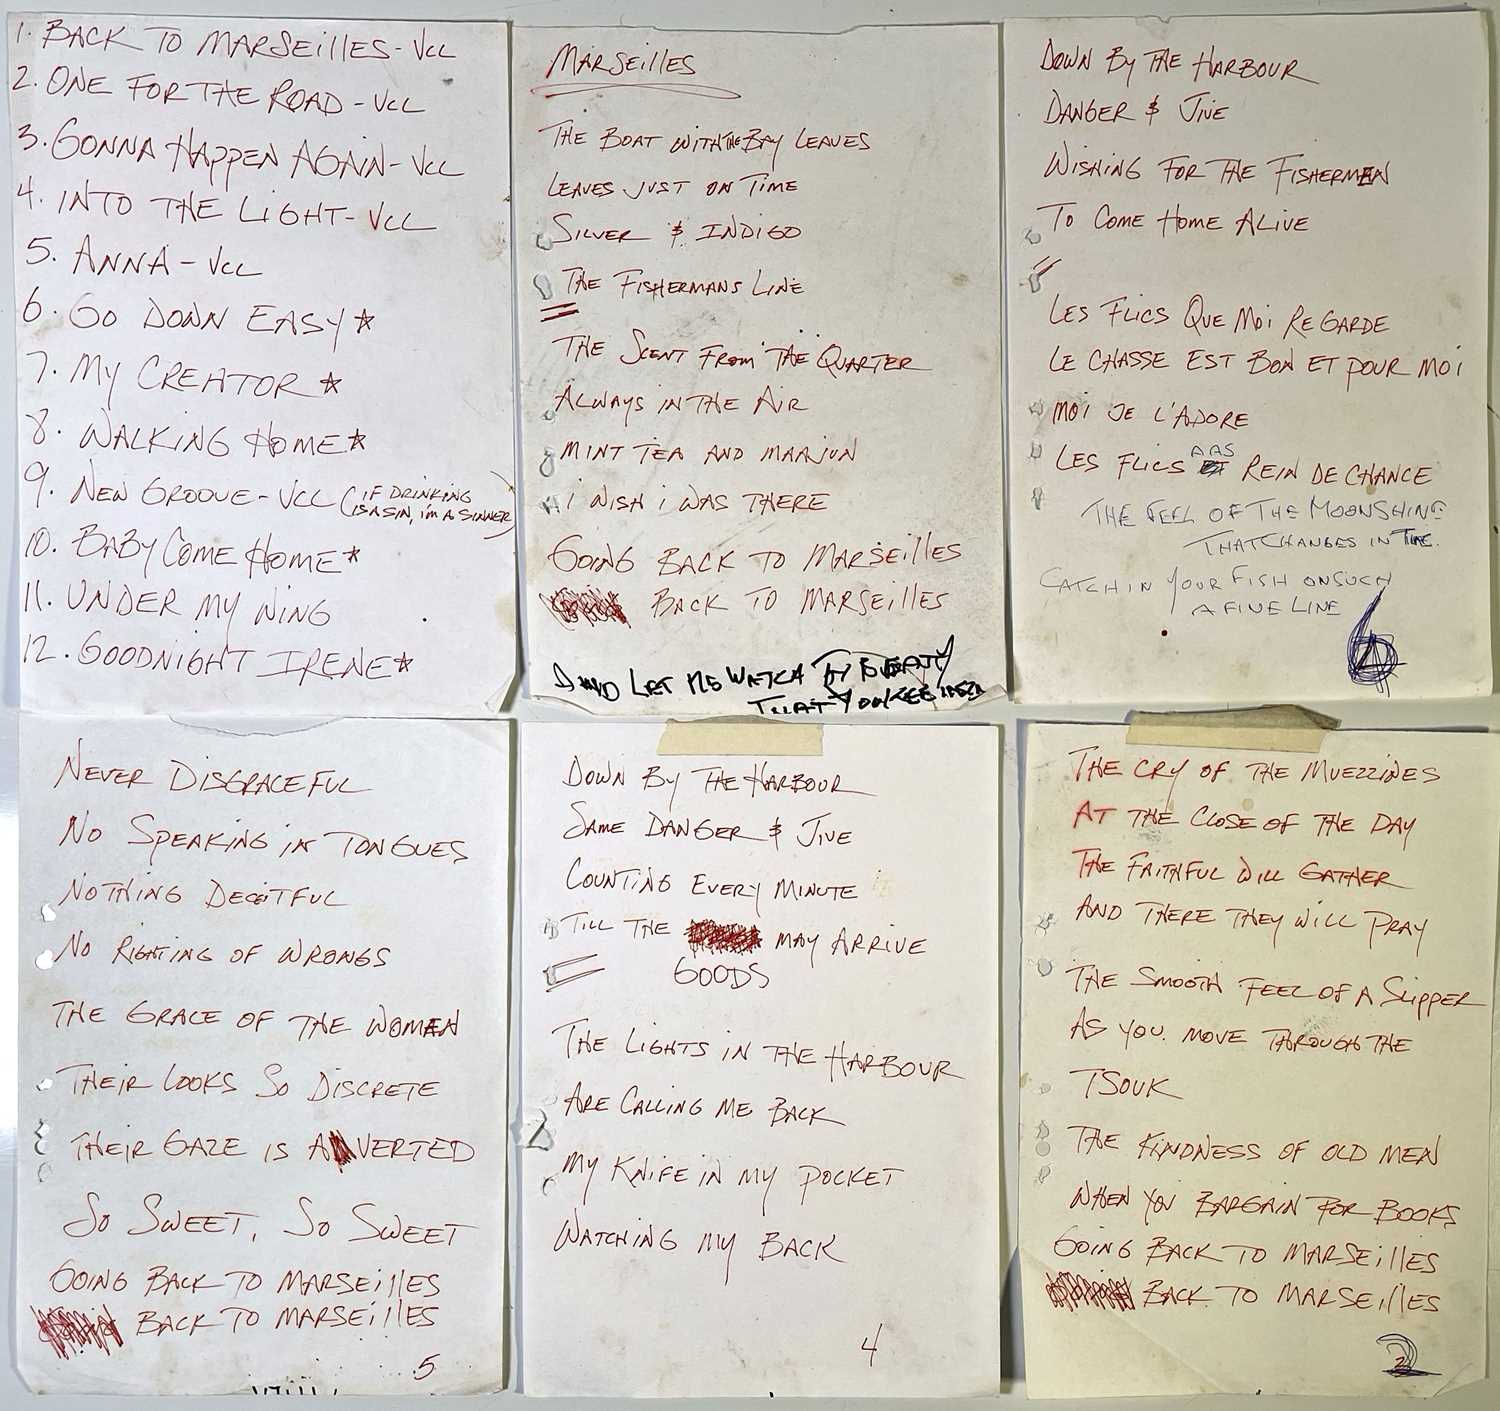 1. BACK TO MARSEILLES - VCL
2. ONE FOR THE ROAD - VCL
3. GONNA HAPPEN AGAIN - VCL
4. INTO THE LIGHT - VCL
5. ANNA - VCL
6. GO DOWN EASY ★
7. MY CREATOR ★
8. WALKING HOME ★
9. NEW GROOVE - VCL (IF DRINKING
IS A SIN, I'M A SINNER)
10. BABY COME HOME ★
11. UNDER MY WING
12. GOODNIGHT IRENE ★
MARSEILLES
THE BOAT WITH THE BAY LEAVES
LEAVES JUST ON TIME
SILVER & INDIGO
THE FISHERMANS LINE
THE SCENT FROM THE QUARTER
ALWAYS IN THE AIR
MINT TEA AND MARJUN
I WISH I WAS THERE
GOING BACK TO MARSEILLES
BACK TO MARSEILLES
LET ME WATCH
THAT YOU
DOWN BY THE HARBOUR
DANGER & JIVE
WISHING FOR THE FISHERMEN
TO COME HOME ALIVE
LES FLICS QUE MOI REGARDE
LE CHASSE EST BON ET POUR MOI
MOI JE L'ADORE
LES FLICS PAS REIN DE CHANCE
THE FEEL OF THE MOONSHINE
THAT CHANGES IN TIME.
CATCHIN YOUR FISH ON SUCH
A FINE LINE
NEVER DISGRACEFUL
NO SPEAKING IN TONGUES
NOTHING DECEITFUL
NO RIGHTING OF WRONGS
THE GRACE OF THE WOMEN
THEIR LOOKS SO DISCRETE
THEIR GAZE IS AVERTED
SO SWEET, SO SWEET
GOING BACK TO MARSEILLES
BACK TO MARSEILLES
5
DOWN BY THE HARBOUR
SAME DANGER & JIVE
COUNTING EVERY MINUTE
TILL THE GOODS MAY ARRIVE
THE LIGHTS IN THE HARBOUR
ARE CALLING ME BACK
MY KNIFE IN MY POCKET
WATCHING MY BACK
4
THE CRY OF THE MUEZZINES
AT THE CLOSE OF THE DAY
THE FAITHFUL WILL GATHER
AND THERE THEY WILL PRAY
THE SMOOTH FEEL OF A SLIPPER
AS YOU MOVE THROUGH THE
TSOUK
THE KINDNESS OF OLD MEN
WHEN YOU BARGAIN FOR BOOKS
GOING BACK TO MARSEILLES
BACK TO MARSEILLES
2